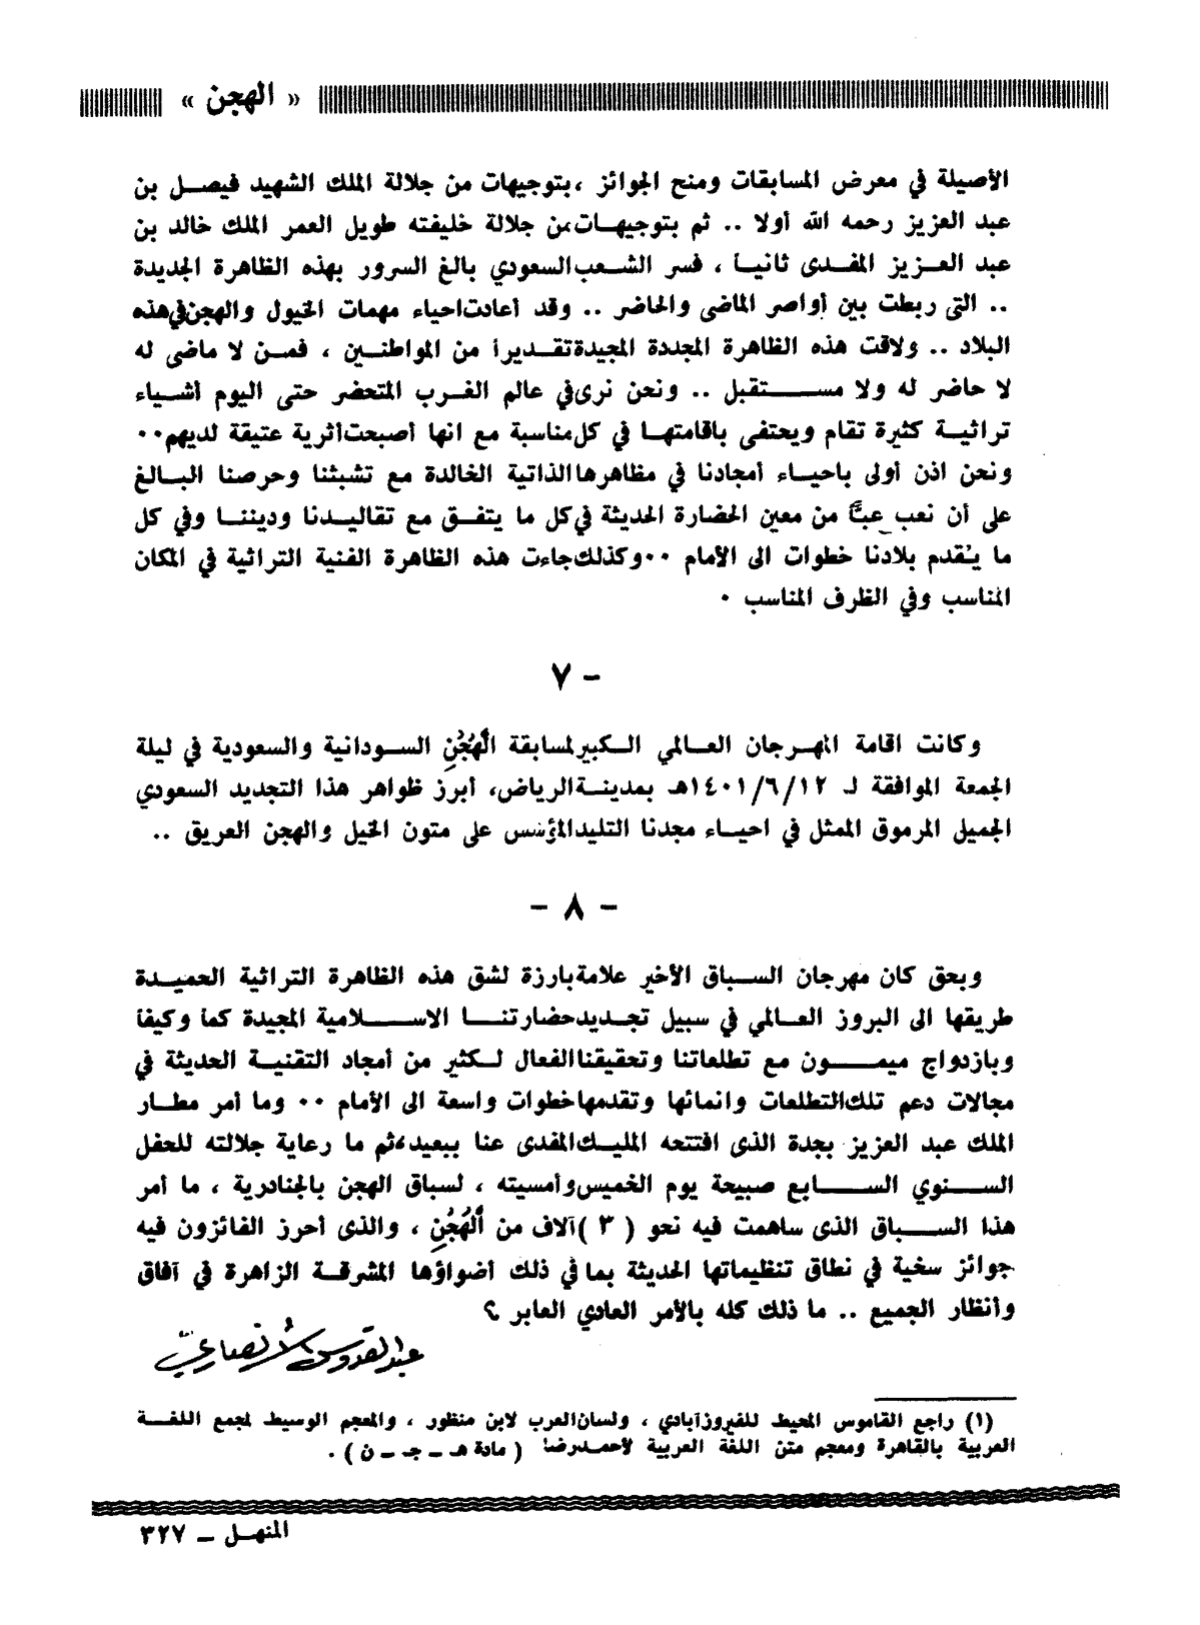 « الهجن »
الأصيلة في معرض المسابقات ومنح الجوائز ، بتوجيهات من جلالة الملك الشهيد فيصل بن
عبد العزيز رحمه الله أولا .. ثم بتوجيهات من جلالة خليفته طويل العمر الملك خالد بن
عبد العزيز المفدى ثانيا ، فسر الشعب السعودي بالغ السرور بهذه الظاهرة الجديدة
.. التى ربطت بين أواصر الماضى والحاضر .. وقد أعادت احياء مهمات الخيول والهجن في هذه
البلاد .. ولاقت هذه الظاهرة المجددة المجيدة تقديرا من المواطنين ، فمن لا ماضى له
لا حاضر له ولا مستقبل .. ونحن نرى في عالم الغرب المتحضر حتى اليوم أشياء
تراثية كثيرة تقام ويحتفى باقامتها في كل مناسبة مع انها أصبحت أثرية عتيقة لديهم ..
ونحن اذن أولى باحياء أمجادنا في مظاهرها الذاتية الخالدة مع تشبثنا وحرصنا البالغ
على أن نعب عبًّا من معين الحضارة الحديثة في كل ما يتفق مع تقاليدنا وديننا وفي كل
ما يتقدم بلادنا خطوات الى الأمام .. وكذلك جاءت هذه الظاهرة الفنية التراثية في المكان
المناسب وفي الظرف المناسب .
٧ –
وكانت اقامة المهرجان العالمي الكبير لمسابقة الْهُجُنِ السودانية والسعودية في ليلة
الجمعة الموافقة لـ ١٤٠١/٦/١٢هـ بمدينة الرياض، أبرز ظواهر هذا التجديد السعودي
الجميل المرموق الممثل في احياء مجدنا التليد المؤسس على متون الخيل والهجن العريق ..
– ٨ –
وبحق كان مهرجان السباق الأخير علامة بارزة لشق هذه الظاهرة التراثية الحميدة
طريقها الى البروز العالمي في سبيل تجديد حضارتنا الاسلامية المجيدة كما وكيفا
وبازدواج ميمون مع تطلعاتنا وتحقيقنا الفعال لكثير من أمجاد التقنية الحديثة في
مجالات دعم تلك التطلعات وانمائها وتقدمها خطوات واسعة الى الأمام .. وما أمر مطار
الملك عبد العزيز بجدة الذى افتتحه المليك المفدى عنا ببعيد ، ثم ما رعاية جلالته للحفل
السنوي السابع صبيحة يوم الخميس وأمسيته ، لسباق الهجن بالجنادرية ، ما أمر
هذا السباق الذى ساهمت فيه نحو ( ٣ ) آلاف من الْهُجُنِ ، والذى أحرز الفائزون فيه
جوائز سخية في نطاق تنظيماتها الحديثة بما في ذلك أضواؤها المشرقة الزاهرة في آفاق
وأنظار الجميع .. ما ذلك كله بالأمر العادي العابر ؟
عبد القدوس الأنصاري
(١) راجع القاموس المحيط للفيروز آبادي ، ولسان العرب لابن منظور ، والمعجم الوسيط لمجمع اللغة
العربية بالقاهرة ومعجم متن اللغة العربية لأحمد رضا ( مادة هـ – جـ – ن ) .
المنهل – ٣٢٧